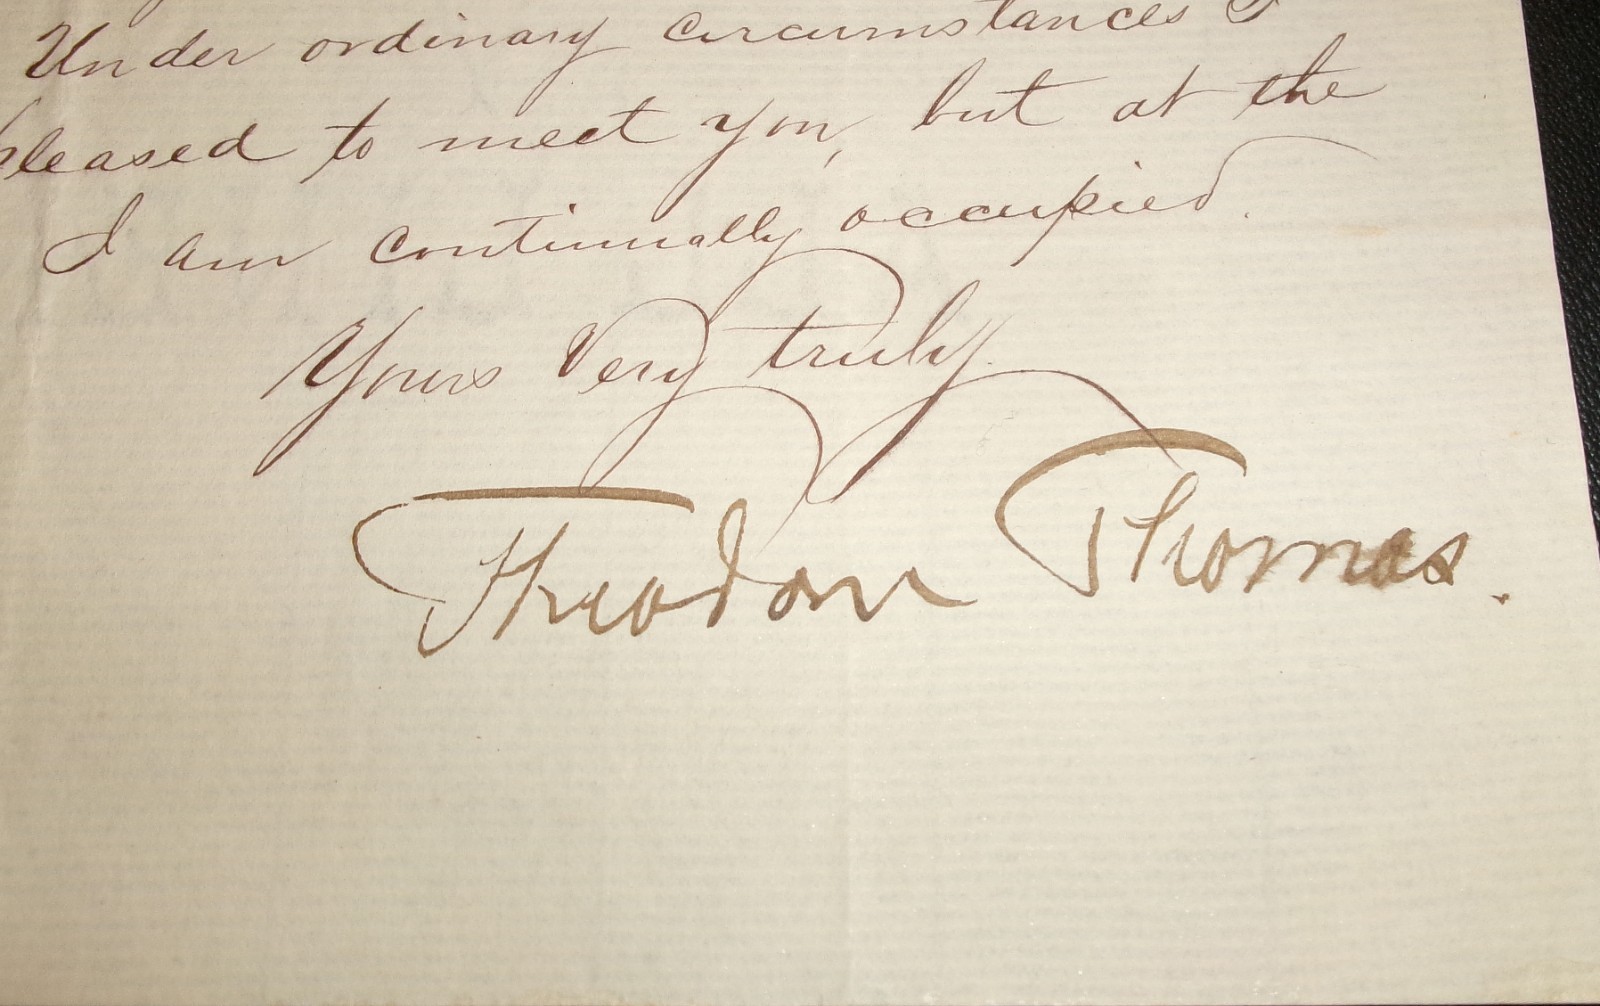 Under ordinary circumstances I
pleased to meet you, but at the
I am continually occupied.
Yours Very truly
Theodore Thomas.